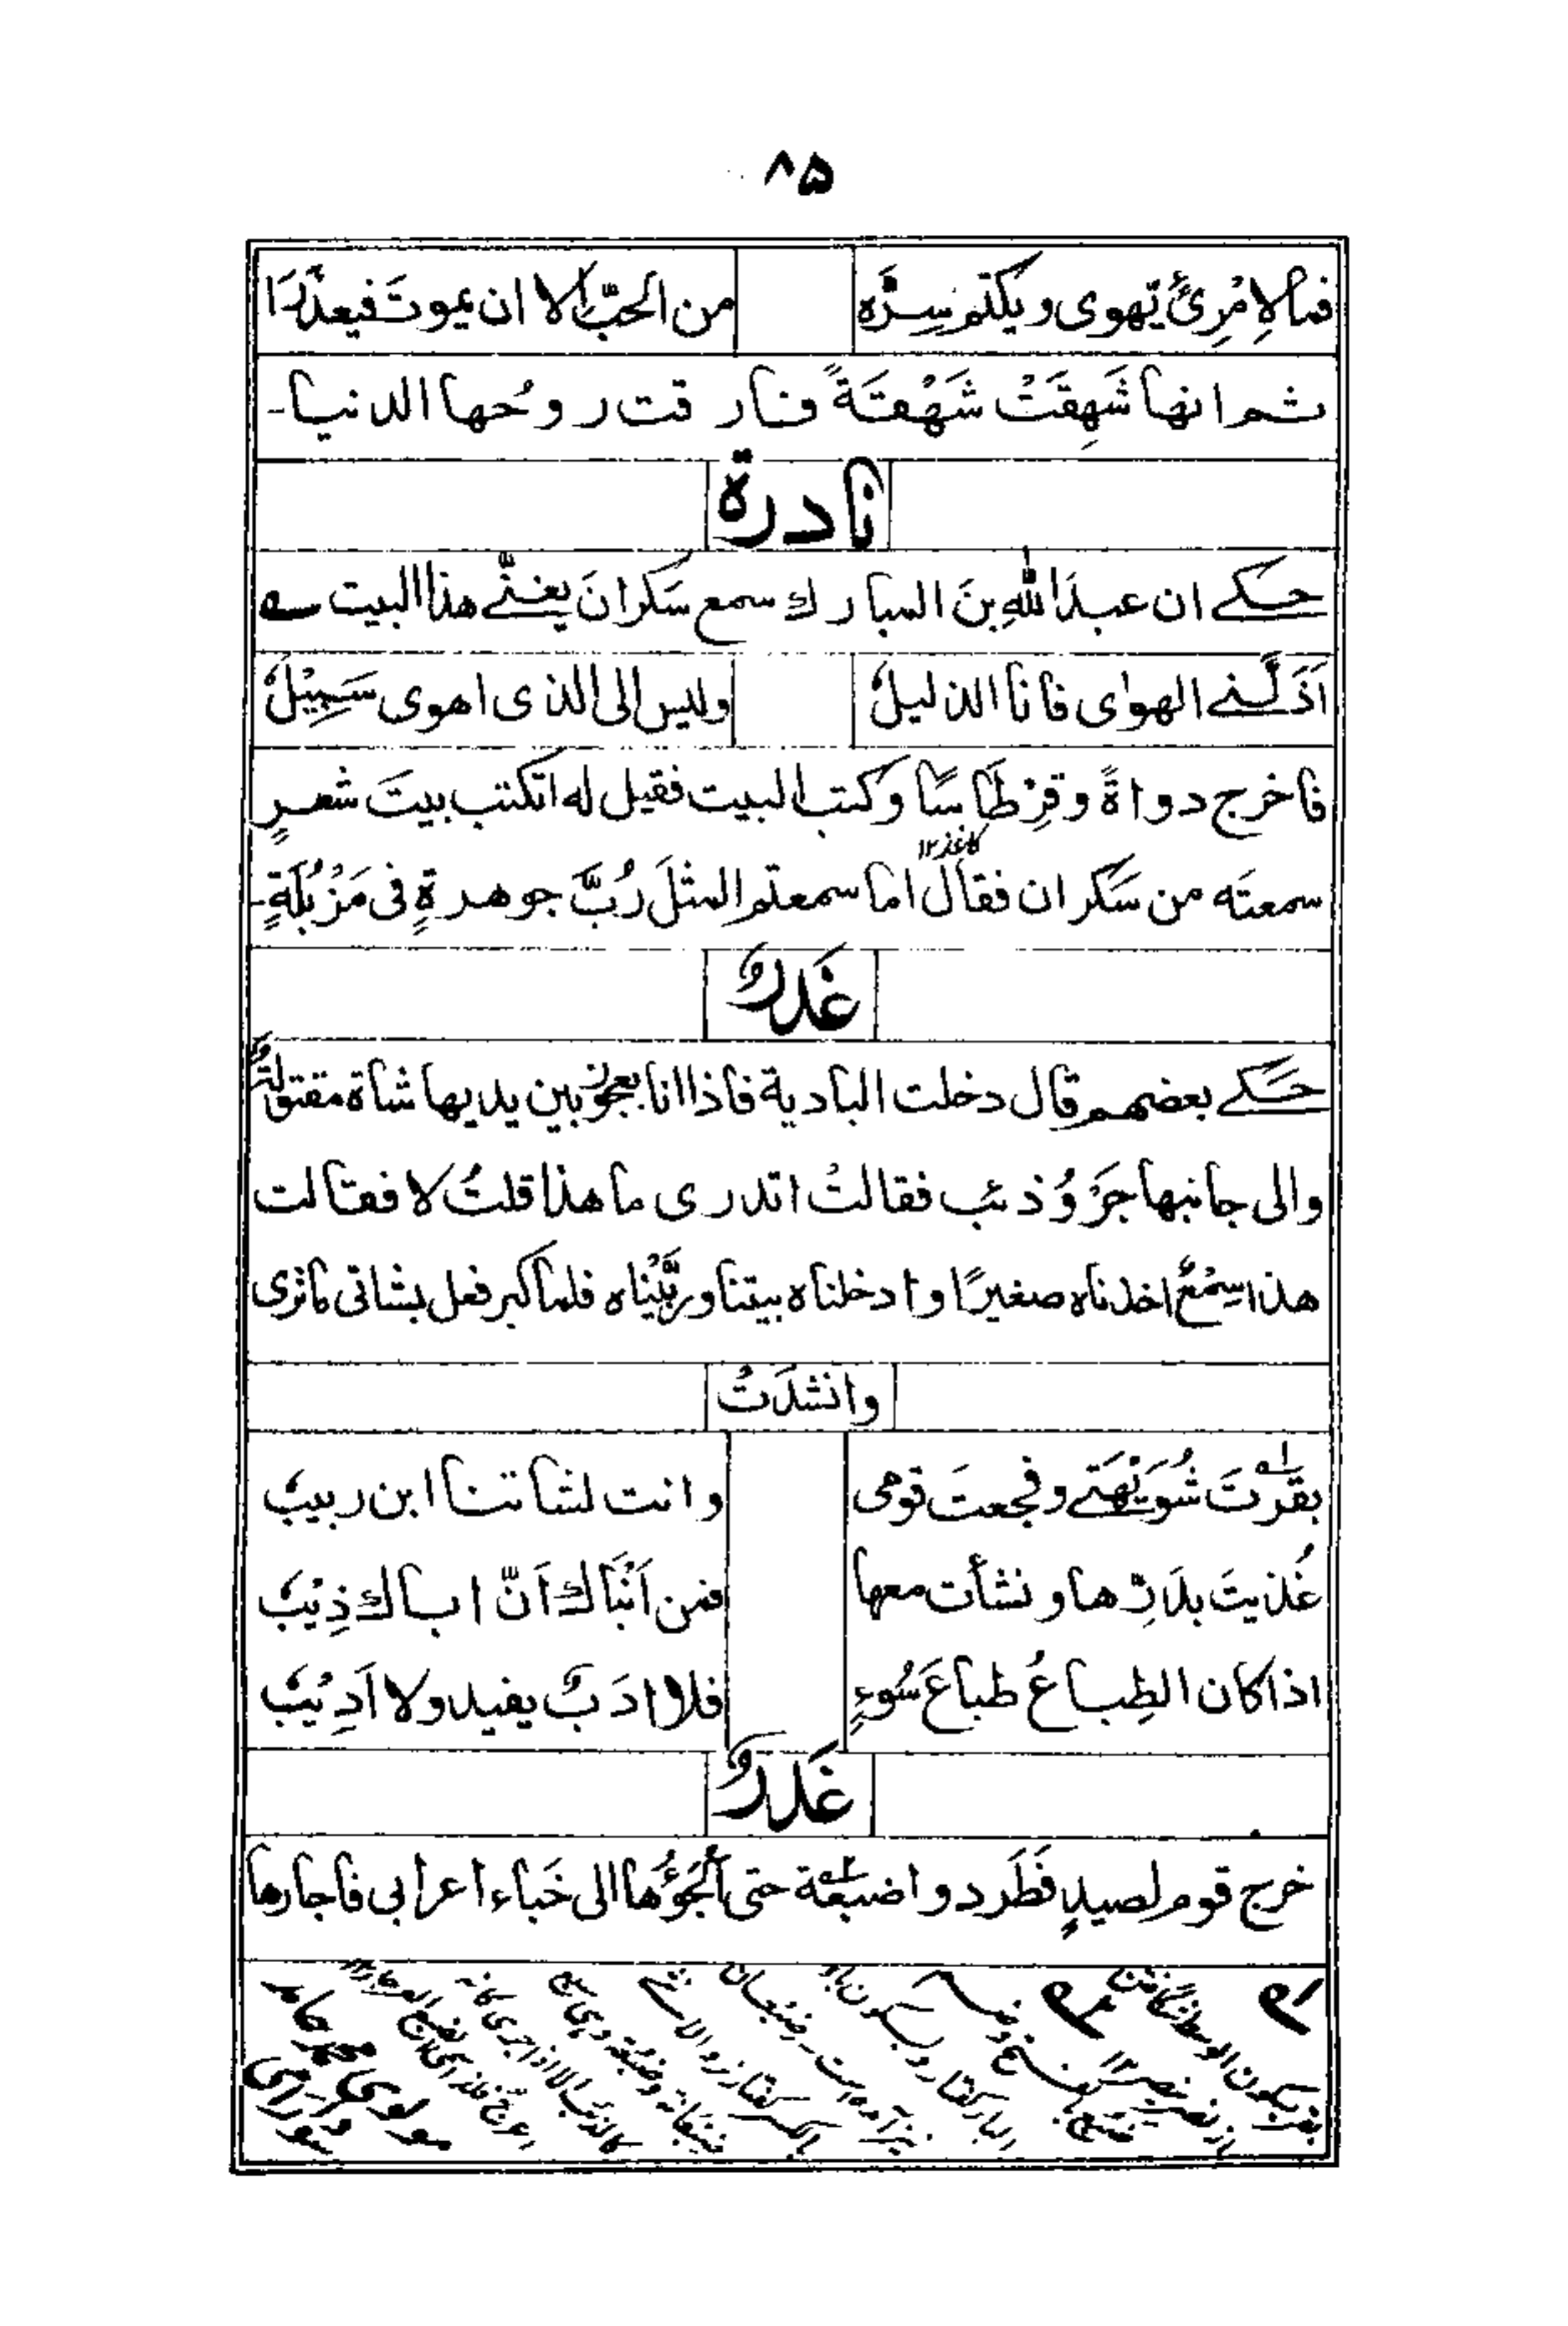 ۸۵
فما لامْرِئٍ يَهوى ويكتم سِرَّه من الحبّ الا ان يموتَ فيعذرَا
ثم انها شَهِقَتْ شَهْقَةً فنار قت روحُها الدنيا-
نادرة
حكے ان عبدَ اللهِ بنَ المبارك سمع سَكرانَ يغنّے هذا البيت ؎
اَذَلَّنے الهوٰى فانا الذليلُ وليس الى الذى اهوى سَبِيْلُ
فاخرج دواةً وقِرْطَاسًا وكتب البيت فقيل له اتكتب بيتَ شعرٍ
كاغذ ۱۲
سمعتَه من سَكران فقال اما سمعتم المثلَ رُبَّ جوهرةٍ فى مَزْبُلَةٍ-
غَدرٌ
حكے بعضهم قال دخلت البادية فاذا انا بعجوزٍ بين يديها شاة مقتولةٌ
والى جانبها جَرْوُ ذئب فقالتْ اتدرى ما هذا قلتُ لا فقالت
هذا سِمْعٌ اخذناه صغيرًا وادخلناه بيتنا وربَّيْناه فلما كبر فعل بشاتى ماترى
وانشدَتْ
بقَرْتَ شُوَيْهَتے وفجعتَ قومى وانت لشاتنا ابن ربيبٌ
غُذيتَ بدَرِّها ونشأت معها فمن اَنْبَاكَ اَنَّ اباك ذِيْبٌ
اذا كان الطِباعُ طباعَ سُوءٍ فلا ادَبٌ يفيد ولا اَدِيْبٌ
غَدرٌ
خرج قوم لصيدٍ فَطَردوا ضبعة حتى اَلْجَؤُها الى خَباء اعرابى فاجارها